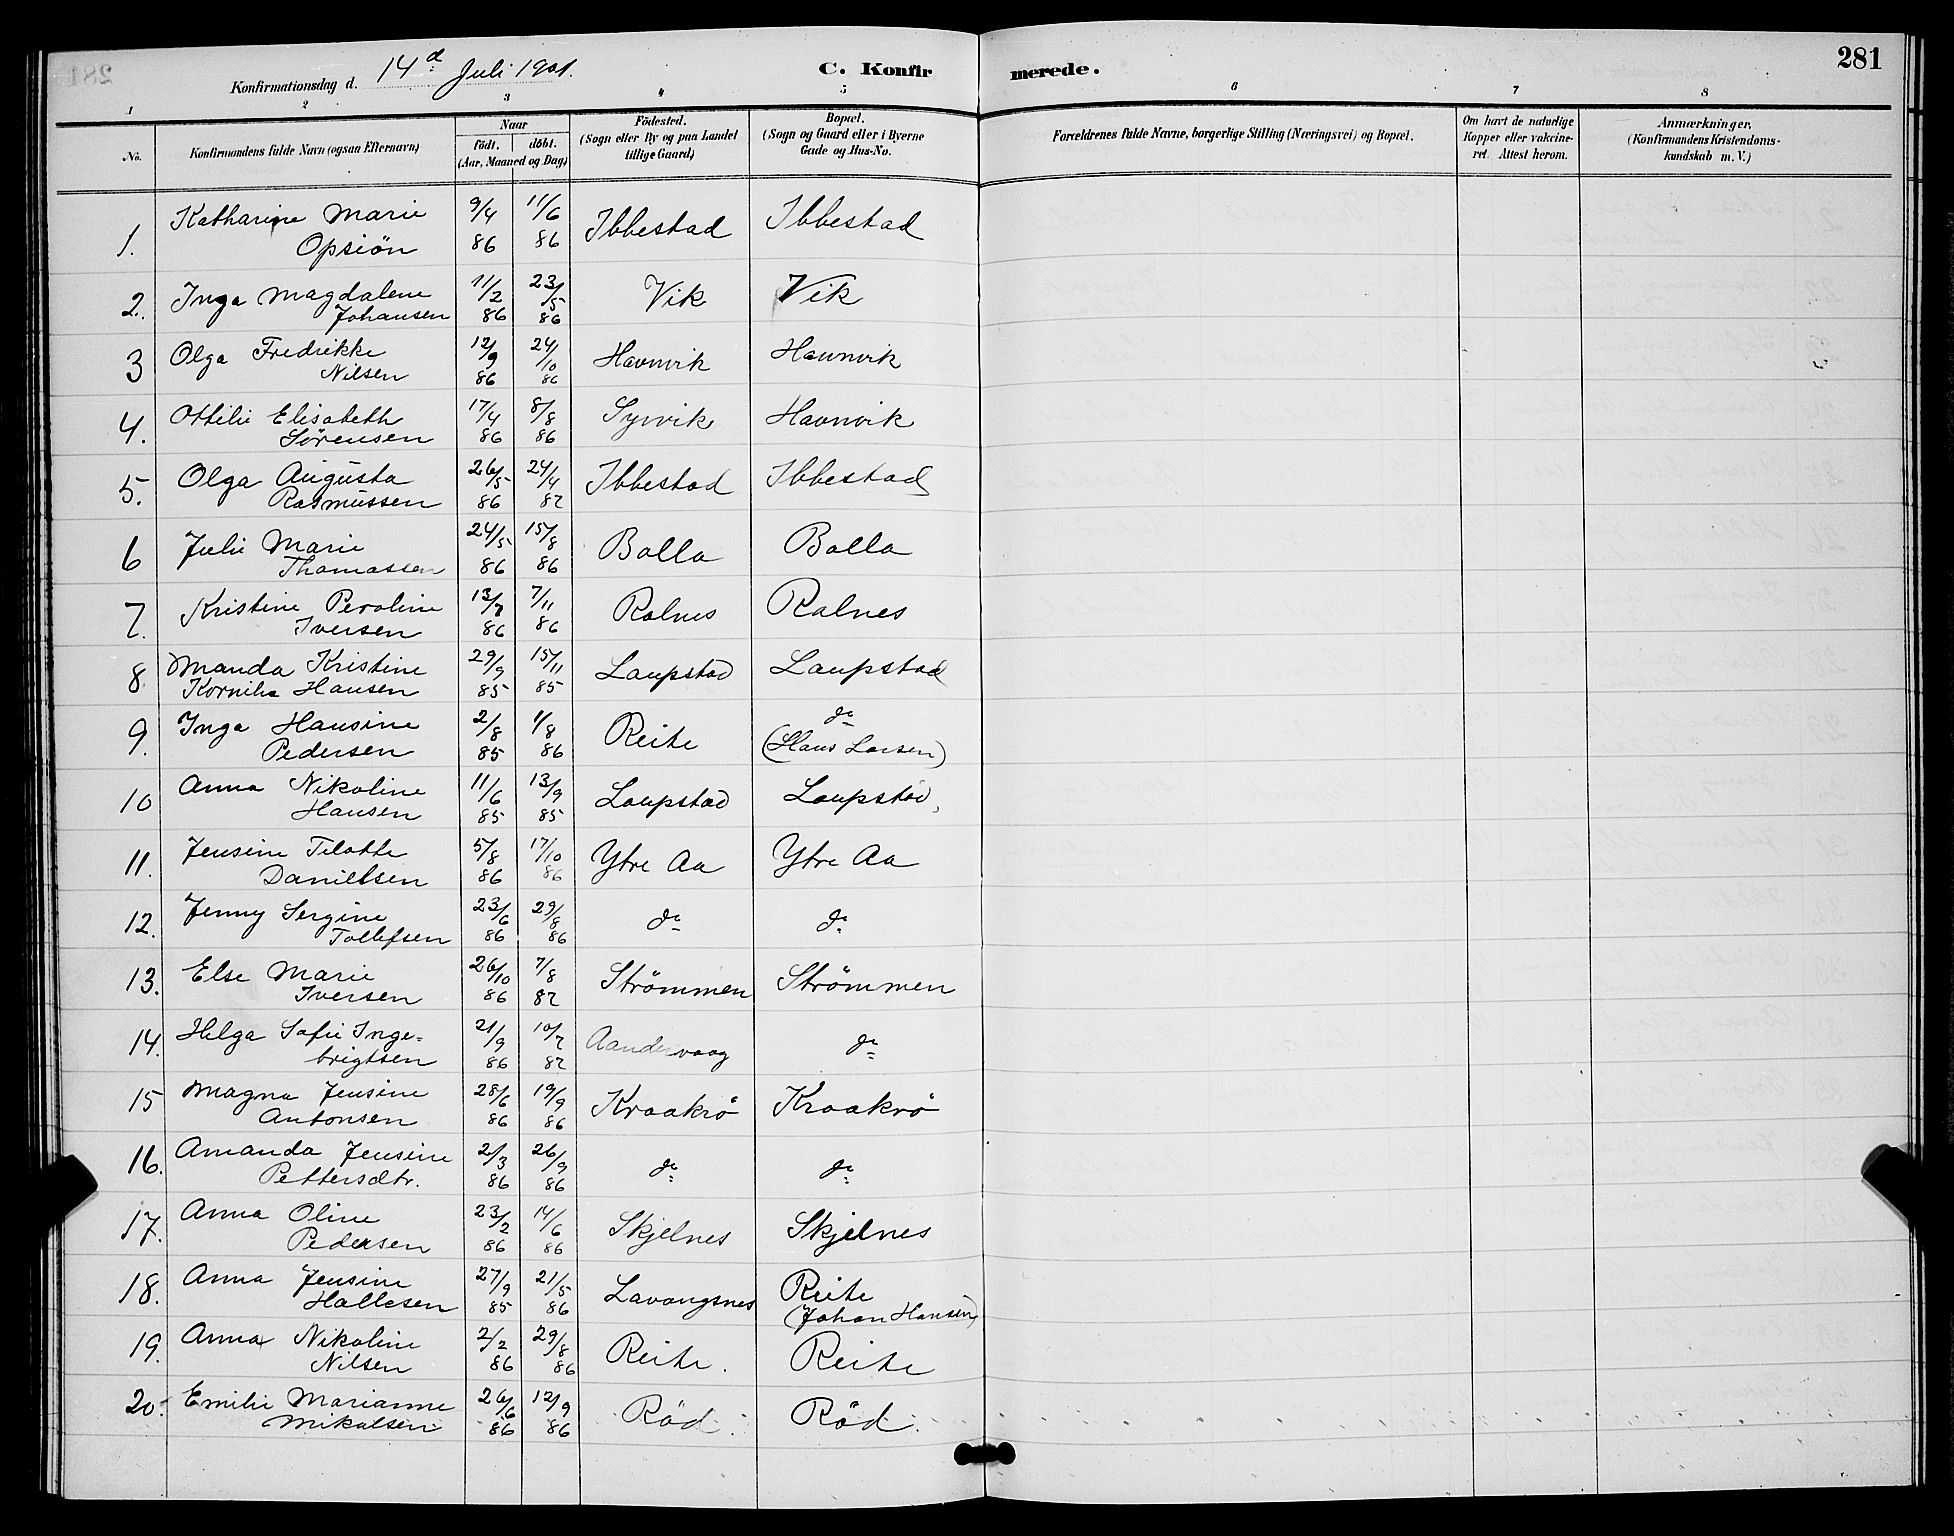 281
Konfirmationsdag d. 14d Juli 1901.
C. Konfirmerede.
1 2 3 4 5 6 7 8
No.
Konfirmandens fulde Navn (ogsaa Efternavn)
Naar
födt. döbt.
(Aar, Maaned og Dag)
Födested.
(Sogn eller By og paa Landet
tillige Gaard)
Bopæl.
(Sogn og Gaard eller i Byerne
Gade og Hus-No.
Forældrenes fulde Navne, borgerlige Stilling (Næringsvei) og Bopæl.
Om havt de naturlige
Kopper eller vakcine-
ret. Attest herom.
Anmærkninger.
(Konfirmandens Kristendoms-
kundskab m. V.)
1. Katharine Marie 9/4 11/6 Ibbestad Ibbestad
Opsiön 86 86
2. Inga Magdalene 11/2 23/5 Vik Vik
Johansen 86 86
3 Olga Fredrikke 12/9 24/10 Havnvik Havnvik
Nilsen 86 86
4. Ottilie Elisabeth 17/4 8/8 Syrvik Havnvik
Sørensen 86 86
5. Olga Augusta 26/5 24/4 Ibbestad Ibbestad
Rasmussen 86 87
6 Julie Marie 24/5 15/8 Bolla Bolla
Thomassen 86 86
7. Kristine Peroline 13/7 7/11 Rolnes Rolnes
Iversen 86 86
8. Manda Kristine 29/9 15/11 Laupstad Laupstad
Kornilia Hansen 85 85
9. Inga Hansine 2/8 1/8 Reite do
Pedersen 85 86 (Hans Larsen)
10 Anna Nikoline 11/6 13/9 Laupstad Laupstad
Hansen 85 85
11. Jensine Tilotte 5/8 17/10 Ytre Aa Ytre Aa
Danielsen 86 86
12. Jenny Sergine 23/6 29/8 do do
Tollefsen 86 86
13. Else Marie 26/10 7/8 Strömmen Strömmen
Iversen 86 87
14. Helga Sofie Inge- 21/9 10/7 Aandervaag do
brigtsen 86 87
15 Magna Jensine 28/6 19/9 Kraakrö Kraakrö
Antonsen 86 86
16. Amanda Jensine 2/3 26/9 do do
Pettersdtr. 86 86
17. Anna Oline 23/2 14/6 Skjelnes Skjelnes
Pedersen 86 86
18. Anna Jensine 27/9 21/5 Lavangsnes Reite
Hallesen 85 86 (Johan Hansen)
19. Anna Nikoline 2/2 29/8 Reite. Reite
Nilsen 86 86
20. Emilie Marianne 26/6 12/9 Röd Röd.
Mikalsen 86 86